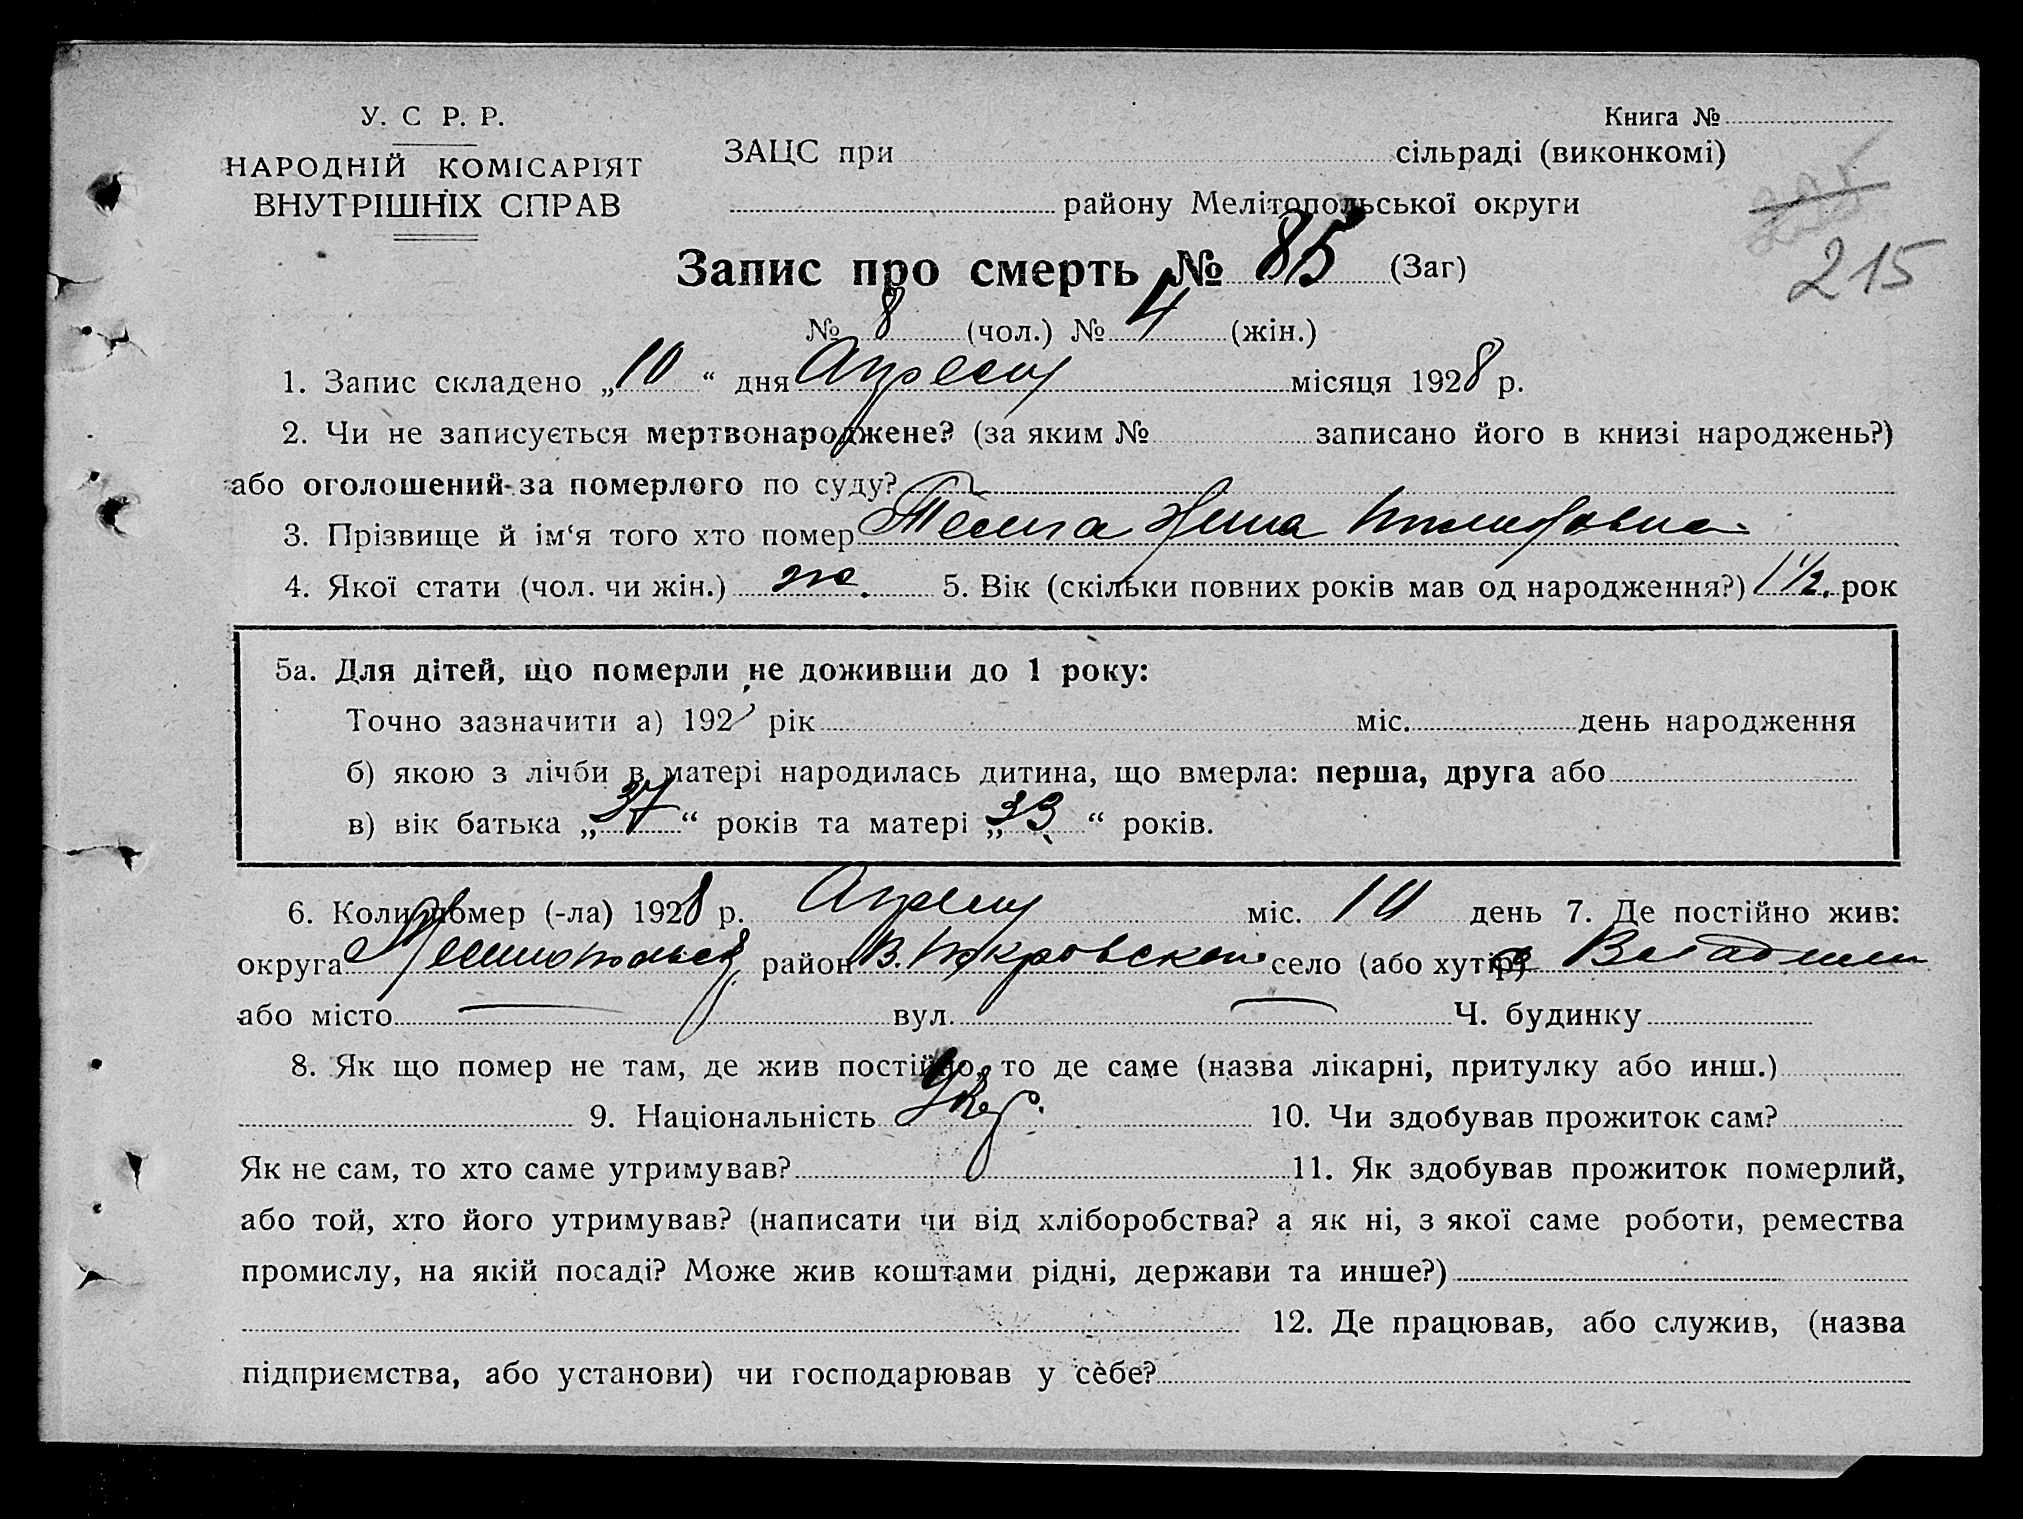 У. С Р. Р.
НАРОДНІЙ КОМІСАРІЯТ
ВНУТРІШНІХ СПРАВ
Книга №
ЗАЦС при сільраді (виконкомі)
району Мелітопольської округи
215
Запис про смерть № 85 (Заг)
№ 8 (чол.) № 4 (жін.)
1. Запис складено „10“ дня Апреля місяця 1928 р.
2. Чи не записується мертвонароджене? (за яким № записано його в книзі народжень?)
або оголошений за померлого по суду?
3. Прізвище й ім‘я того хто помер
4. Якої стати (чол. чи жін.) ж. 5. Вік (скільки повних років мав од народження?) 1 1/2. рок
5а. Для дітей, що померли не доживши до 1 року:
Точно зазначити а) 192 рік міс. день народження
б) якою з лічби в матері народилась дитина, що вмерла: перша, друга або
в) вік батька „37“ років та матері „33“ років.
6. Коли помер (-ла) 1928 р. Апреля міс. 10 день 7. Де постійно жив:
округа район В. Покровское село (або хутір)
або місто вул. Ч. будинку
8. Як що помер не там, де жив постійно, то де саме (назва лікарні, притулку або инш.)
9. Національність Укр. 10. Чи здобував прожиток сам?
Як не сам, то хто саме утримував? 11. Як здобував прожиток померлий,
або той, хто його утримував? (написати чи від хліборобства? а як ні, з якої саме роботи, ремества
промислу, на якій посаді? Може жив коштами рідні, держави та инше?)
12. Де працював, або служив, (назва
підприємства, або установи) чи господарював у себе?